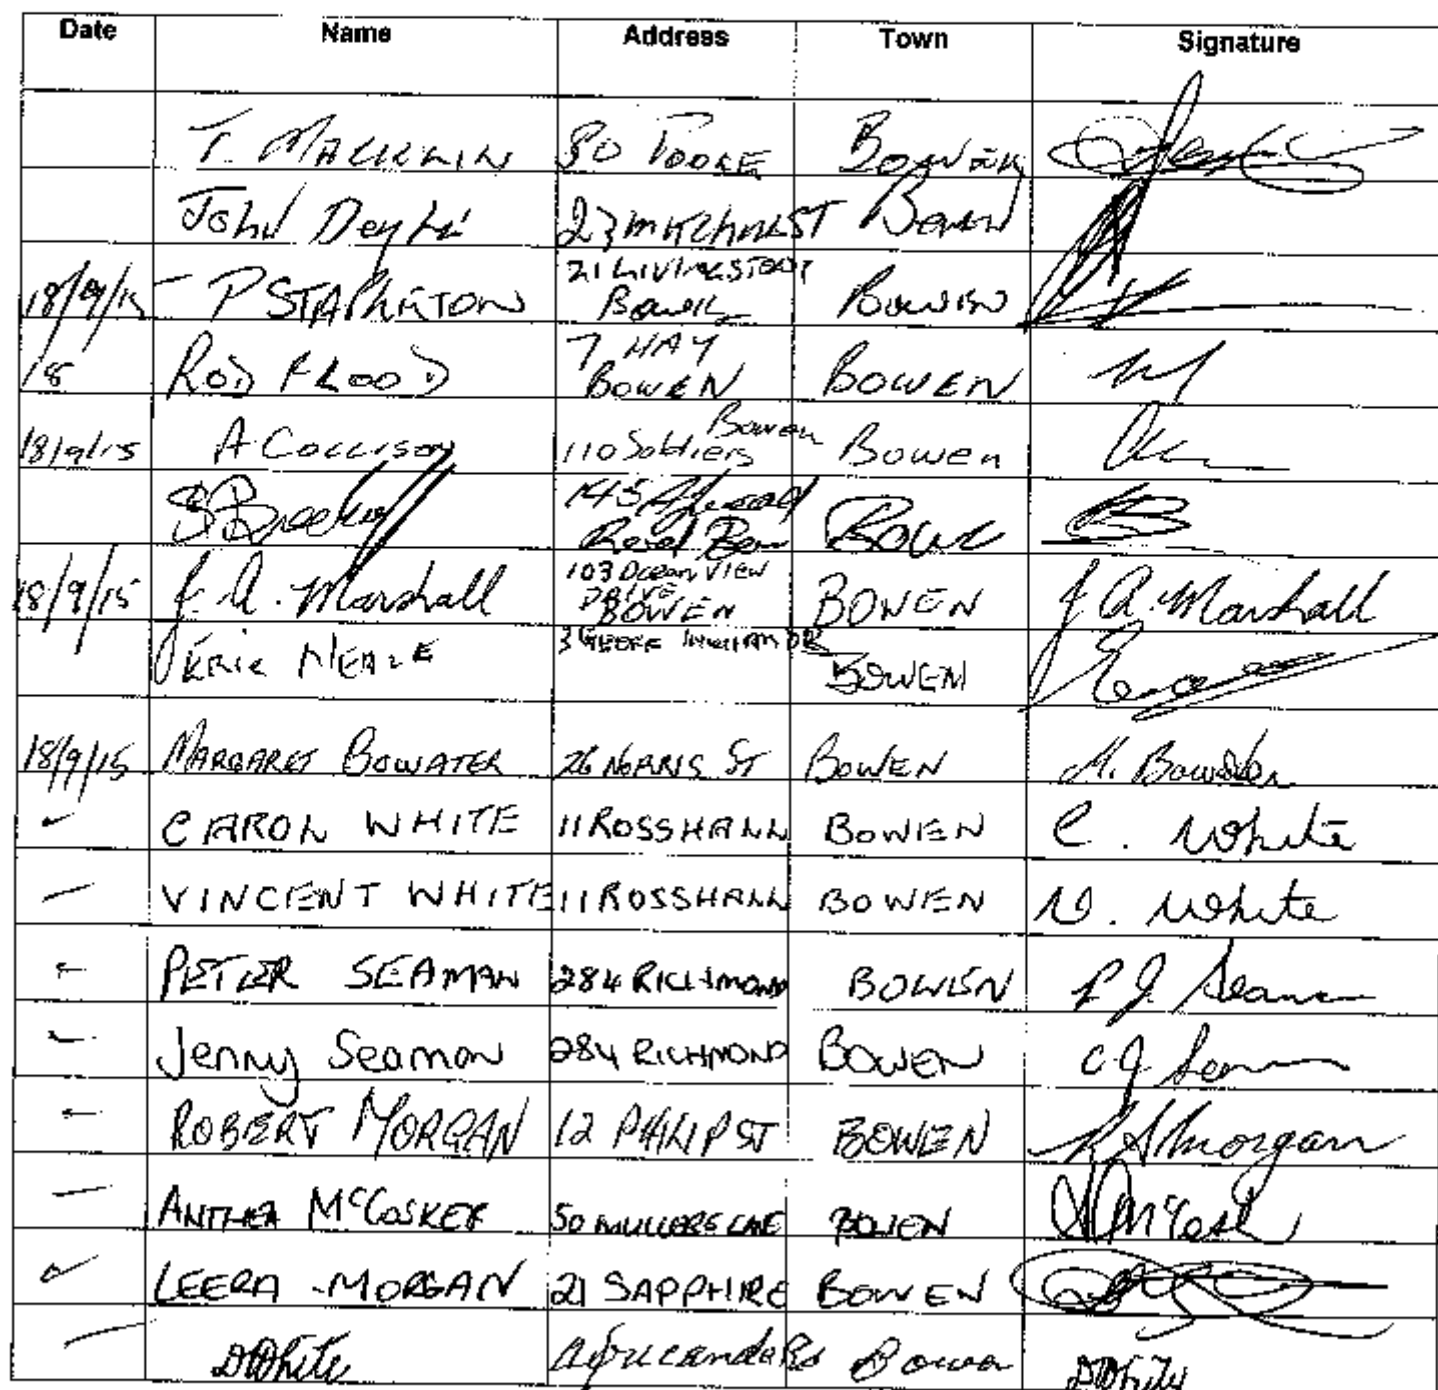 Date Name Address Town Signature
T. MACKLIN 80 POOLE BOWEN
John 23 BOWEN
18/9/15 P STAPLETON 21 LIVINGSTONE BOWEN
Bowen
18 ROD FLOOD 7 HAY BOWEN
BOWEN
18/9/15 A COLLISON 110 Soldiers Bowen Bowen
145
Road
18/9/15 J. A. Marshall 103 Ocean VIEW BOWEN J A. Marshall
DRIVE
BOWEN
ERIC NEALE 3 BOWEN
18/9/15 MARGARET BOWATER 26 NORRIS ST BOWEN M. Bowater
CAROL WHITE 11 ROSSHALL BOWEN C. White
VINCENT WHITE 11 ROSSHALL BOWEN V. White
PETER SEAMAN 284 RICHMOND BOWEN P J Seaman
Jenny Seaman 284 RICHMOND BOWEN C J
ROBERT MORGAN 12 PHILIP ST BOWEN Morgan
ANTHEA McCOSKER 50 MULLERS LANE BOWEN
LEERA MORGAN 21 SAPPHIRE BOWEN
D White Rd Bowen D White